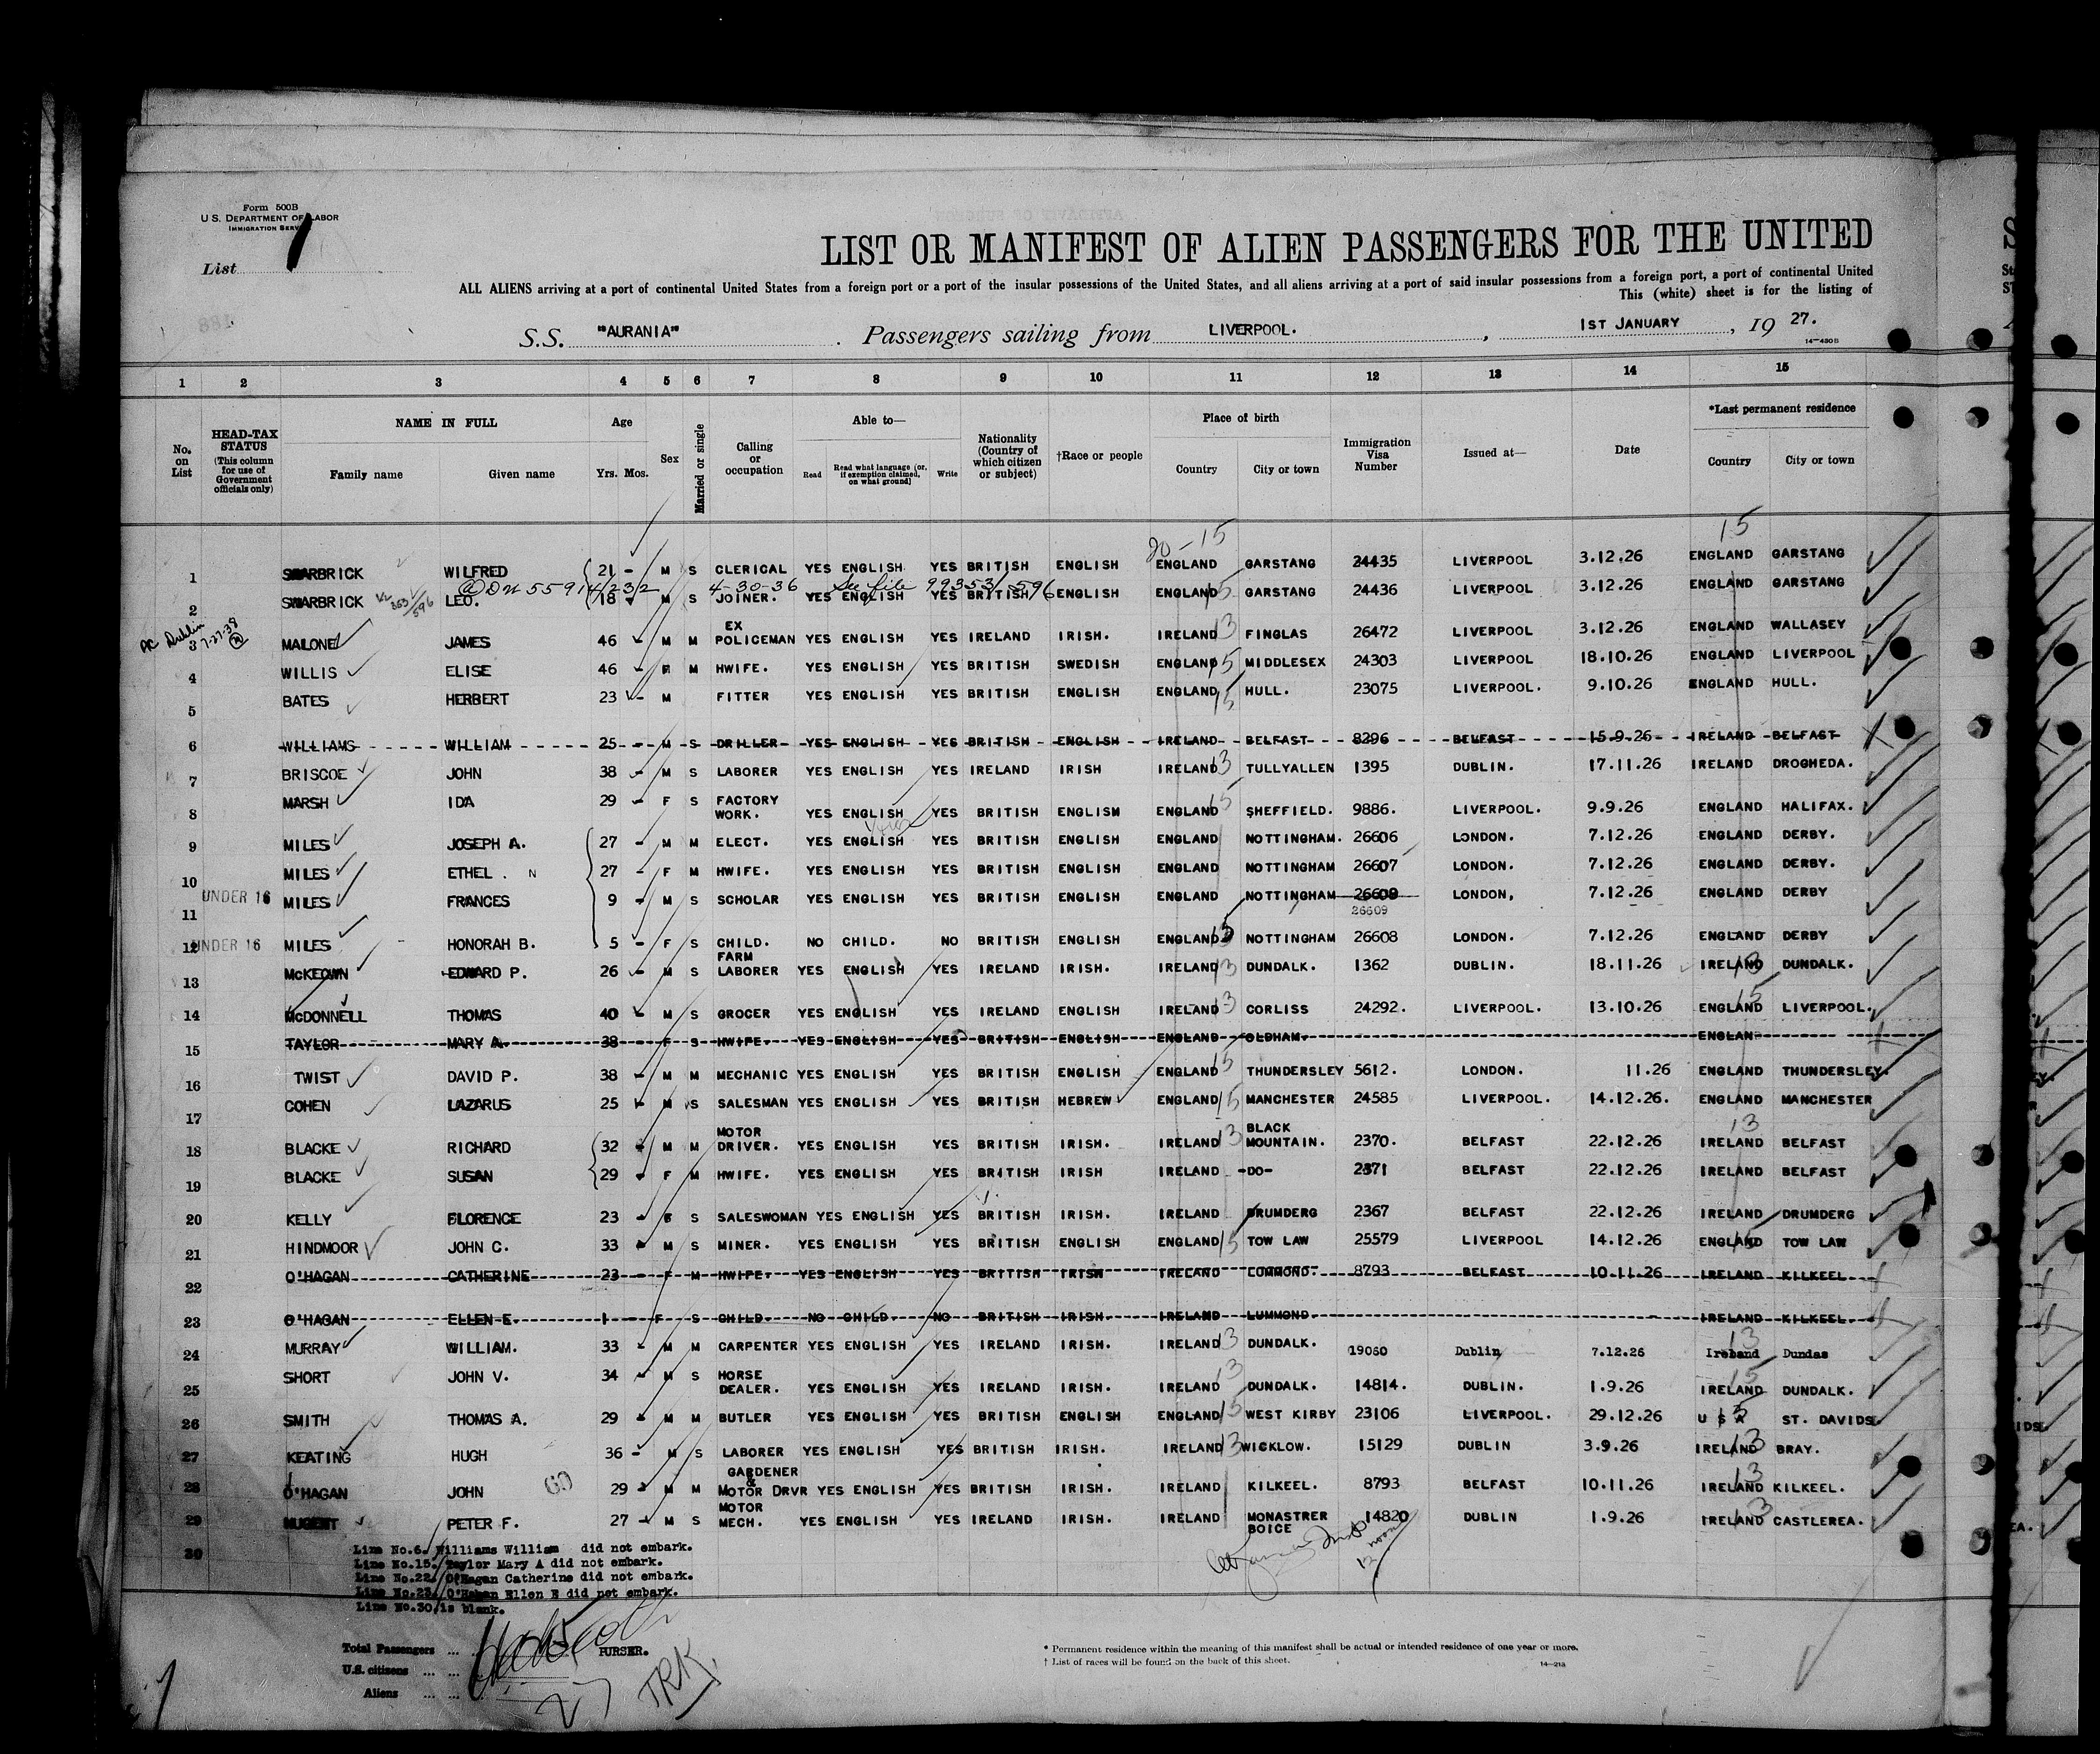 Form 500B
U.S. DEPARTMENT OF LABOR
IMMIGRATION SERV
List 1
LIST OR MANIFEST OF ALIEN PASSENGERS FOR THE UNITED
ALL ALIENS arriving at a port of continental United States from a foreign port or a port of the insular possessions of the United States, and all aliens arriving at a port of said insular possessions from a foreign port, a port of continental United
This (white) sheet is for the listing of
S.S. "AURANIA" . Passengers sailing from LIVERPOOL. , 1ST JANUARY , 19 27.
14—430B
1 2 3 4 5 6 7 8 9 10 11 12 13 14 15
No. on List
HEAD-TAX STATUS (This column for use of Government officials only)
NAME IN FULL
Family name Given name
Age
Yrs. Mos.
Sex
Married or single
Calling or occupation
Able to—
Read Read what language (or, if exemption claimed, on what ground) Write
Nationality (Country of which citizen or subject)
†Race or people
Place of birth
Country City or town
Immigration Visa Number
Issued at—
Date
*Last permanent residence
Country City or town
20-15 15
1 SWARBRICK WILFRED 21 - M S CLERICAL YES ENGLISH YES BRITISH ENGLISH ENGLAND GARSTANG 24435 LIVERPOOL 3.12.26 ENGLAND GARSTANG
4-30-36 See file 99353/596
2 SWARBRICK LEO. 18 M S JOINER. YES ENGLISH YES BRITISH ENGLISH ENGLAND 15 GARSTANG 24436 LIVERPOOL 3.12.26 ENGLAND GARSTANG
Dublin 7-27-38
3 MALONE JAMES 46 - M M EX POLICEMAN YES ENGLISH YES IRELAND IRISH. IRELAND 13 FINGLAS 26472 LIVERPOOL 3.12.26 ENGLAND WALLASEY
4 WILLIS ELISE 46 - F M HWIFE. YES ENGLISH YES BRITISH SWEDISH ENGLAND 15 MIDDLESEX 24303 LIVERPOOL 18.10.26 ENGLAND LIVERPOOL
5 BATES HERBERT 23 - M FITTER YES ENGLISH YES BRITISH ENGLISH ENGLAND 15 HULL. 23075 LIVERPOOL. 9.10.26 ENGLAND HULL.
6 WILLIAMS WILLIAM 25 - M S DRILLER YES ENGLISH YES BRITISH ENGLISH IRELAND BELFAST 8296 BELFAST 15.9.26 IRELAND BELFAST
7 BRISCOE JOHN 38 - M S LABORER YES ENGLISH YES IRELAND IRISH IRELAND 13 TULLYALLEN 1395 DUBLIN. 17.11.26 IRELAND DROGHEDA.
8 MARSH IDA 29 - F S FACTORY WORK. YES ENGLISH YES BRITISH ENGLISH ENGLAND 15 SHEFFIELD. 9886. LIVERPOOL. 9.9.26 ENGLAND HALIFAX.
9 MILES JOSEPH A. 27 - M M ELECT. YES ENGLISH YES BRITISH ENGLISH ENGLAND NOTTINGHAM. 26606 LONDON. 7.12.26 ENGLAND DERBY.
10 MILES ETHEL . N 27 - F M HWIFE. YES ENGLISH YES BRITISH ENGLISH ENGLAND NOTTINGHAM 26607 LONDON. 7.12.26 ENGLAND DERBY.
11 UNDER 16 MILES FRANCES 9 - M S SCHOLAR YES ENGLISH YES BRITISH ENGLISH ENGLAND NOTTINGHAM 26608 LONDON, 7.12.26 ENGLAND DERBY
26609
12 UNDER 16 MILES HONORAH B. 5 - F S CHILD. NO CHILD. NO BRITISH ENGLISH ENGLAND 15 NOTTINGHAM 26608 LONDON. 7.12.26 ENGLAND DERBY
13 McKEOWN EDWARD P. 26 - M S FARM LABORER YES ENGLISH YES IRELAND IRISH. IRELAND 13 DUNDALK. 1362 DUBLIN. 18.11.26 IRELAND 13 DUNDALK.
14 McDONNELL THOMAS 40 - M S GROCER YES ENGLISH YES IRELAND ENGLISH IRELAND 13 CORLISS 24292. LIVERPOOL. 13.10.26 ENGLAND 15 LIVERPOOL.
15 TAYLOR MARY A. 38 F S HWIFE. YES ENGLISH YES BRITISH ENGLISH ENGLAND OLDHAM. ENGLAN
16 TWIST DAVID P. 38 - M M MECHANIC YES ENGLISH YES BRITISH ENGLISH ENGLAND 15 THUNDERSLEY 5612. LONDON. 11.26 ENGLAND THUNDERSLEY.
17 COHEN LAZARUS 25 - M S SALESMAN YES ENGLISH YES BRITISH HEBREW ENGLAND 15 MANCHESTER 24585 LIVERPOOL. 14.12.26. ENGLAND MANCHESTER
18 BLACKE RICHARD 32 - M M MOTOR DRIVER. YES ENGLISH YES BRITISH IRISH. IRELAND 13 BLACK MOUNTAIN. 2370. BELFAST 22.12.26 13 IRELAND BELFAST
19 BLACKE SUSAN 29 - F M HWIFE. YES ENGLISH YES BRITISH IRISH IRELAND -DO- 2371 BELFAST 22.12.26 IRELAND BELFAST
20 KELLY FLORENCE 23 - F S SALESWOMAN YES ENGLISH YES BRITISH IRISH. IRELAND DRUMDERG 2367 BELFAST 22.12.26 IRELAND DRUMDERG
21 HINDMOOR JOHN C. 33 - M S MINER. YES ENGLISH YES BRITISH ENGLISH ENGLAND 15 TOW LAW 25579 LIVERPOOL 14.12.26 ENGLAND 15 TOW LAW
22 O'HAGAN CATHERINE 23 - F M HWIFE. YES ENGLISH YES BRITISH IRISH IRELAND LUMMOND. 8793 BELFAST 10.11.26 IRELAND KILKEEL
23 O'HAGAN ELLEN E. 1 - F S CHILD. NO CHILD. NO BRITISH IRISH. IRELAND LUMMOND. IRELAND KILKEEL.
24 MURRAY WILLIAM. 33 - M M CARPENTER YES ENGLISH YES IRELAND IRISH. IRELAND 13 DUNDALK. 19060 Dublin 7.12.26 13 Ireland Dundas
25 SHORT JOHN V. 34 - M S HORSE DEALER. YES ENGLISH YES IRELAND IRISH. 13 IRELAND DUNDALK. 14814. DUBLIN. 1.9.26 15 IRELAND DUNDALK.
26 SMITH THOMAS A. 29 - M M BUTLER YES ENGLISH YES BRITISH ENGLISH ENGLAND 15 WEST KIRBY 23106 LIVERPOOL. 29.12.26 U S A ST. DAVIDS
27 KEATING HUGH 36 - M S LABORER YES ENGLISH YES BRITISH IRISH. IRELAND 13 WICKLOW. 15129 DUBLIN 3.9.26 IRELAND 13 BRAY.
28 O'HAGAN JOHN 29 - M M GARDENER & MOTOR DRVR YES ENGLISH YES BRITISH IRISH. IRELAND KILKEEL. 8793 BELFAST 10.11.26 13 IRELAND KILKEEL.
29 NUGENT PETER F. 27 - M S MOTOR MECH. YES ENGLISH YES IRELAND IRISH. IRELAND MONASTRER BOICE 14820 DUBLIN 1.9.26 IRELAND 13 CASTLEREA.
30
Line No.6. Williams William did not embark.
Line No.15. Taylor Mary A did not embark.
Line No.22. O'Hagan Catherine did not embark.
Line No.23. O'Hagan Ellen E did not embark.
Line No.30 is blank.
Total Passengers ... PURSER.
U.S. citizens ... ...
Aliens ... ...
27 TRK
* Permanent residence within the meaning of this manifest shall be actual or intended residence of one year or more.
† List of races will be found on the back of this sheet.
14—213